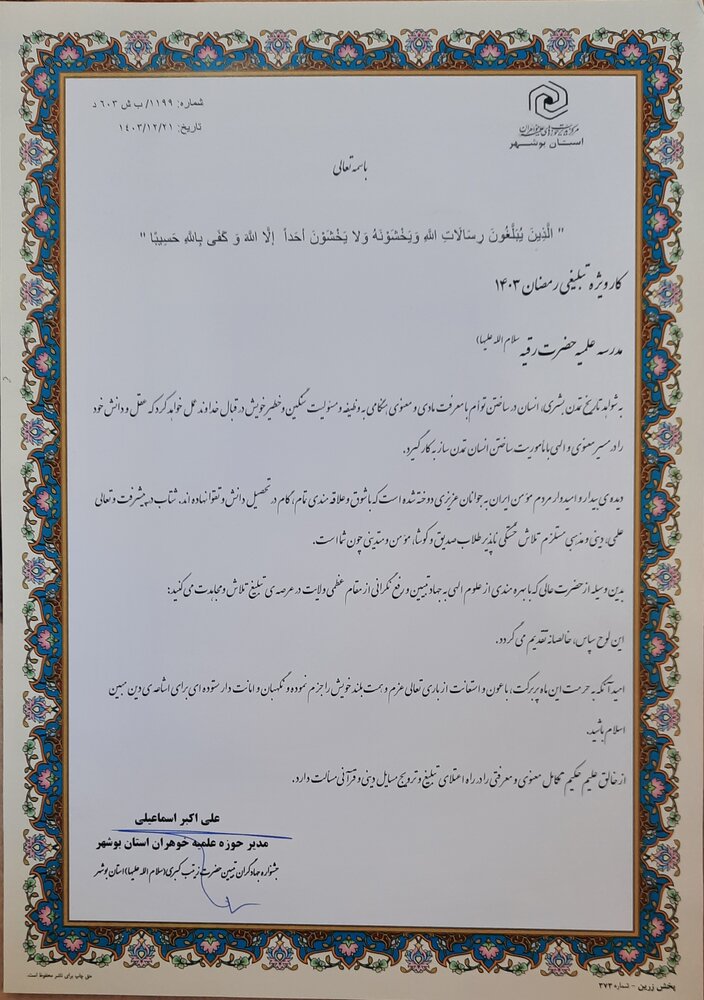 شماره: ۱۱۹۹/ ب ش ۶۰۳ د
تاریخ: ۱۴۰۳/۱۲/۲۱
استان بوشهر
باسمه تعالی
" الَّذِینَ یُبَلِّغُونَ رِسَالَاتِ اللَّهِ وَیَخْشَوْنَهُ وَلا یَخْشَوْنَ أحَداً إلَّا اللَّهَ وَ کَفَى بِاللَّهِ حَسِیبًا "
کار ویژه تبلیغی رمضان ۱۴۰۳
مدرسه علمیه حضرت رقیه سلام الله علیها)
به شواهد تاریخ تمدن بشری، انسان در ساختن توأم با معرفت مادی و معنوی هنگامی به وظیفه و مسئولیت سنگین و خطیر خویش در قبال خداوند عمل خواهد کرد که عقل و دانش خود
را در مسیر معنوی و الهی با مأموریت ساختن انسان تمدن ساز به کار گیرد.
دیده‌ی بیدار و امیدوار مردم مؤمن ایران به جوانان عزیزی دوخته شده است که با شوق و علاقه مندی تام، گام در تحصیل دانش و تقوا نهاده اند. شتاب در پیشرفت و تعالی
علمی، دینی و مذهبی مستلزم تلاش خستگی ناپذیر طلاب صدیق و کوشا، مؤمن و متدینی چون شما است.
بدین وسیله از حضرت عالی که با بهره مندی از علوم الهی به جهاد تبیین و رفع نگرانی از مقام عظمی ولایت در عرصه ی تبلیغ تلاش و مجاهدت می کنید:
این لوح سپاس، خالصانه تقدیم می گردد.
امید آنکه به حرمت این ماه پربرکت، با عون و استعانت از باری تعالی عزم و همت بلند خویش را جزم نموده و نگهبان و امانت دار ستوده ای برای اشاعه ی دین مبین
اسلام باشید.
از خالق علیم حکیم تکامل معنوی و معرفتی را در راه اعتلای تبلیغ و ترویج مسایل دینی و قرآنی مسألت دارد.
علی اکبر اسماعیلی
مدیر حوزه علمیه خوهران استان بوشهر
جشنواره جهادگران تبیین حضرت زینب کبری(سلام الله علیها)استان بوشهر
حق چاپ برای ناشر محفوظ است.
پخش زرین - شماره ۳۷۳